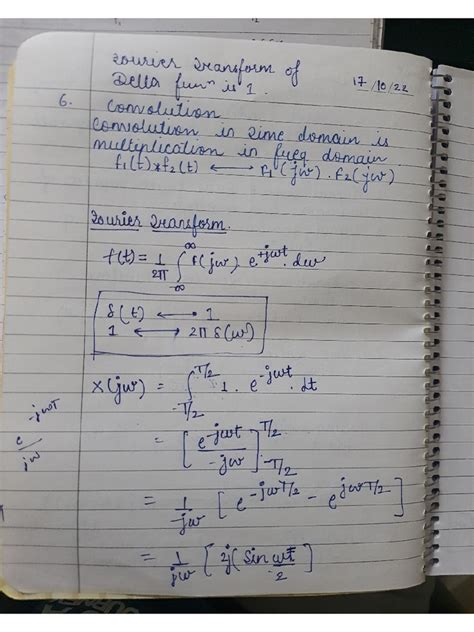 Fourier Transform of
Delta funⁿ is 1.
17/10/22
6. Convolution
Convolution in Time domain is
multiplication in freq domain
f₁(t)*f₂(t) ⟷ F₁(jω).F₂(jω)
Fourier Transform.
f(t) = 1/2π ∫_{-∞}^{∞} F(jω) e^{+jωt}.dω
δ(t) ⟵• 1
1 ⟷ 2π δ(ω)
X(jω) = ∫_{-T/2}^{T/2} 1. e^{-jωt}.dt
= [e^{-jωt}/-jω]_{-T/2}^{T/2}
e^{-jωT}/jω
= 1/-jω [e^{-jωT/2} - e^{jωT/2}]
= 1/jω [2j(Sin ωT/2)]